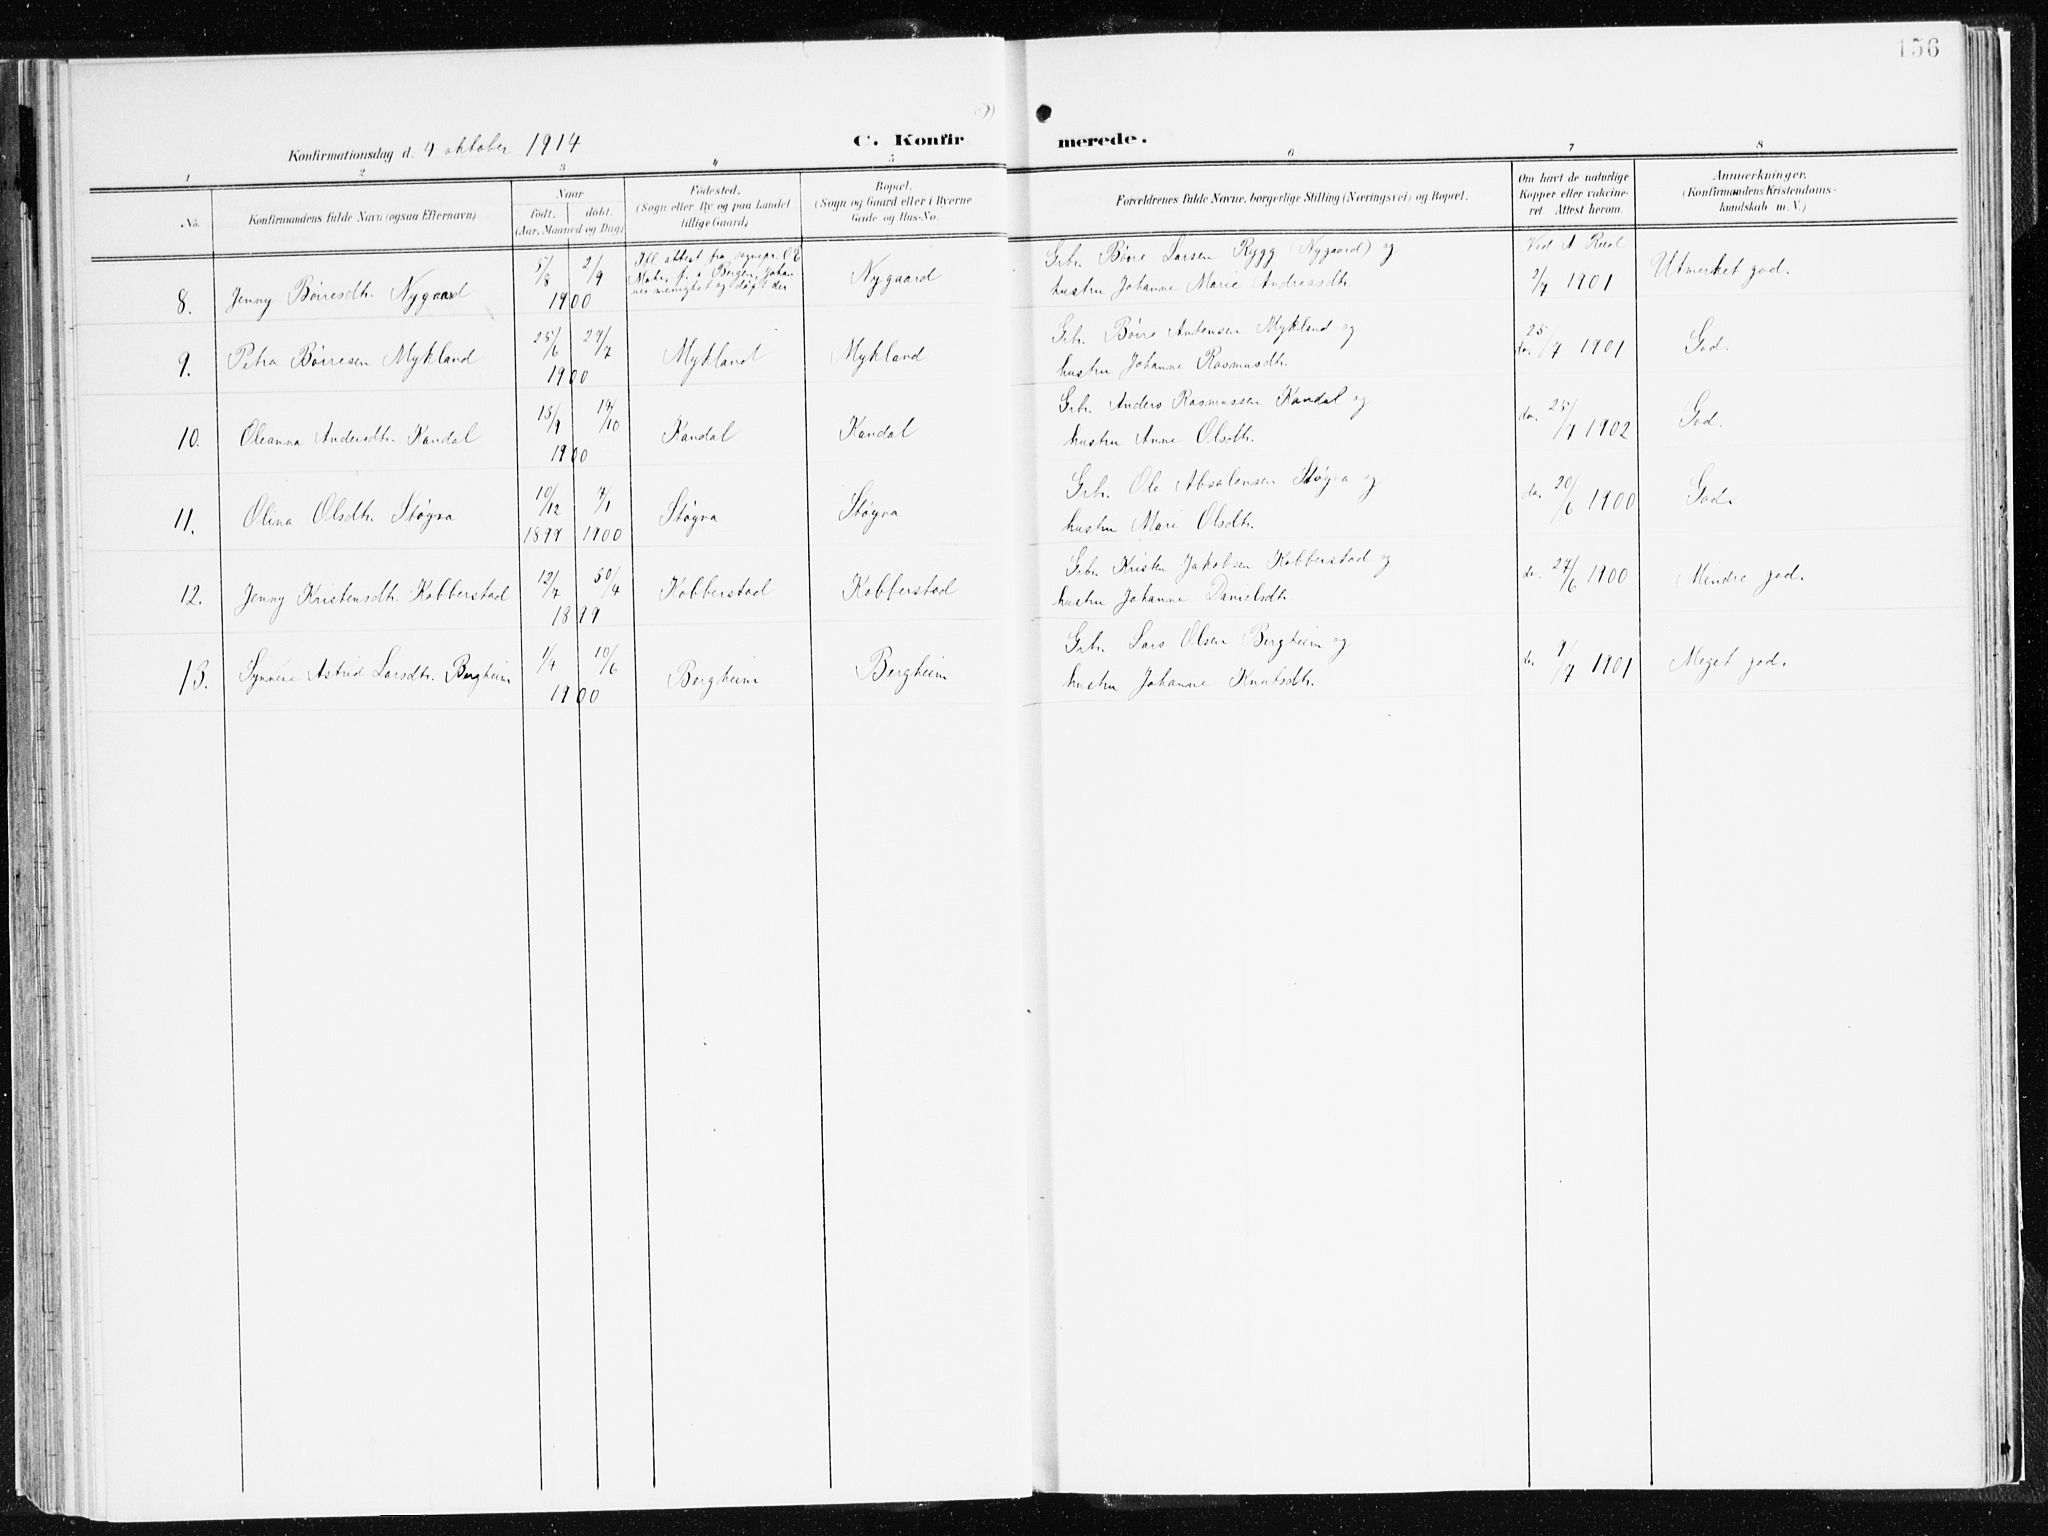 156
Konfirmationsdag d. 4 oktober 1914
C. Konfirmerede.
1 2 3 4 5 6 7 8
No.
Konfirmandens fulde Navn (ogsaa Efternavn)
Naar
födt. döbt.
(Aar, Maaned og Dag)
Födested.
(Sogn eller By og paa Landet
tillige Gaard)
Bopæl.
(Sogn og Gaard eller i Byerne
Gade og Hus-No.
Forældrenes fulde Navne, borgerlige Stilling (Næringsvei) og Bopæl.
Om havt de naturlige
Kopper eller vakcine-
ret Attest herom.
Anmærkninger.
(Konfirmandens Kristendoms-
kundskab m. V.)
8. Jenny Børresdtr. Nygaard
5/8 2/9
1900
attest fra sognepr.
Bergen, Johan
nes menighet og døpt der
Nygaard
Grbr. Børre Larsen Rygg (Nygaard) og
hustru Johanne Marie Andreasdtr.
Ved A
2/7 1901
Utmerket god.
9. Petra Børresen Mykland
25/6 27/7
1900
Mykland
Mykland
Grbr. Børre Antonsen Mykland og
hustru Johanne Rasmusdtr.
do. 25/7 1901
God.
10. Oleanna Andersdtr. Kandal
18/9 19/10
1900
Kandal
Kandal
Grbr. Anders Rasmussen Kandal og
hustru Anne Olsdtr.
do. 25/7 1902
God.
11. Olina Olsdtr. Støyva
10/12 7/1
1899 1900
Støyva
Støyva
Grbr. Ole Absalonsen Støyva og
hustru Mari Olsdtr.
do. 20/6 1900
God.
12. Jenny Kristensdtr. Kobberstad
12/7 30/4
1899
Kobberstad
Kobberstad
Grbr. Kristen Jakobsen Kobberstad og
hustru Johanne Danielsdtr.
do. 27/6 1900
Mindre god.
13. Synneve Astrid Larsdtr. Bergheim
1/4 10/6
1900
Bergheim
Bergheim
Grbr. Lars Olsen Bergheim og
hustru Johanne Knutsdtr.
do. 9/7 1901
Meget god.